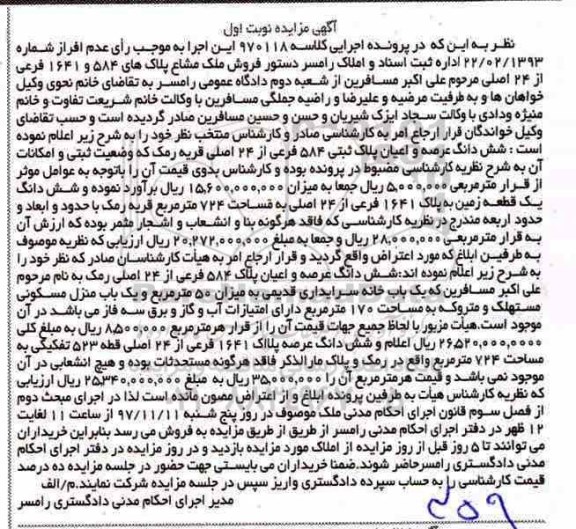 آگهی مزایده نوبت اول
نظر به این که در پرونده اجرایی کلاسه ۹۷۰۱۱۸ این اجرا به موجب رأی عدم افراز شماره
۲۲/۰۲/۱۳۹۳ اداره ثبت اسناد و املاک رامسر دستور فروش ملک مشاع پلاک های ۵۸۴ و ۱۶۴۱ فرعی
از ۲۴ اصلی مرحوم علی اکبر مسافرین از شعبه دوم دادگاه عمومی رامسر به تقاضای خانم نحوی وکیل
خواهان ها و به طرفیت مرضیه و علیرضا و راضیه جملگی مسافرین با وکالت خانم شریعت تفاوت و خانم
منیژه ودادی با وکالت سجاد ایزک شیریان و حسن و حسین مسافرین صادر گردیده است و حسب تقاضای
وکیل خواندگان قرار ارجاع امر به کارشناسی صادر و کارشناس منتخب نظر خود را به شرح زیر اعلام نموده
است : شش دانگ عرصه و اعیان پلاک ثبتی ۵۸۴ فرعی از ۲۴ اصلی قریه رمک که وضعیت ثبتی و امکانات
آن به شرح نظریه کارشناسی مضبوط در پرونده بوده و کارشناس بدوی قیمت آن را باتوجه به عوامل موثر
از قرار مترمربعی ۵,۰۰۰,۰۰۰ ریال جمعا به میزان ۱۵,۶۰۰,۰۰۰,۰۰۰ ریال برآورد نموده و شش دانگ
یک قطعه زمین به پلاک ۱۶۴۱ فرعی از ۲۴ اصلی به مساحت ۷۲۴ مترمربع قریه رمک با حدود و ابعاد و
حدود اربعه مندرج در نظریه کارشناسی که فاقد هرگونه بنا و انشعاب و اشجار مثمر بوده که ارزش آن
به قرار مترمربعی ۲۸,۰۰۰,۰۰۰ ریال و جمعا به مبلغ ۲۰,۲۷۲,۰۰۰,۰۰۰ ریال ارزیابی که نظریه موصوف
به طرفین ابلاغ که مورد اعتراض واقع گردید و قرار ارجاع امر به هیأت کارشناسان صادر که نظر خود را
به شرح زیر اعلام نموده اند:شش دانگ عرصه و اعیان پلاک ۵۸۴ فرعی از ۲۴ اصلی رمک به نام مرحوم
علی اکبر مسافرین که یک باب خانه سرایداری قدیمی به میزان ۵۰ مترمربع و یک باب منزل مسکونی
مستهلک و متروکه به مساحت ۱۷۰ مترمربع دارای امتیازات آب و گاز و برق سه فاز می باشد در آن
موجود است.هیأت مزبور با لحاظ جمیع جهات قیمت آن را از قرار هرمترمربع ۸,۵۰۰,۰۰۰ ریال به مبلغ کلی
۲۶,۵۲۰,۰۰۰,۰۰۰ ریال اعلام و شش دانگ عرصه پلاک ۱۶۴۱ فرعی از ۲۴ اصلی قطه ۵۲۳ تفکیکی به
مساحت ۷۲۴ مترمربع واقع در رمک و پلاک مارالذکر فاقد هرگونه مستحدثات بوده و هیچ انشعابی در آن
موجود نمی باشد و قیمت هرمترمربع آن را ۳۵,۰۰۰,۰۰۰ ریال به مبلغ ۲۵,۳۴۰,۰۰۰,۰۰۰ ریال ارزیابی
که نظریه کارشناس هیأت به طرفین پرونده ابلاغ و از اعتراض مصون مانده است لذا در اجرای مبحث دوم
از فصل سوم قانون اجرای احکام مدنی ملک موصوف در روز پنج شنبه ۹۷/۱۱/۱۱ از ساعت ۱۱ لغایت
۱۲ ظهر در دفتر اجرای احکام مدنی رامسر از طریق از طریق مزایده به فروش می رسد بنابراین خریداران
می توانند تا ۵ روز قبل از روز مزایده از املاک مورد مزایده بازدید و در روز مزایده در دفتر اجرای احکام
مدنی دادگستری رامسرحاضر شوند.ضمنا خریداران می بایستی جهت حضور در جلسه مزایده ده درصد
قیمت کارشناسی را به حساب سپرده دادگستری واریز سپس در جلسه مزایده شرکت نمایند.م/الف
مدیر اجرای احکام مدنی دادگستری رامسر